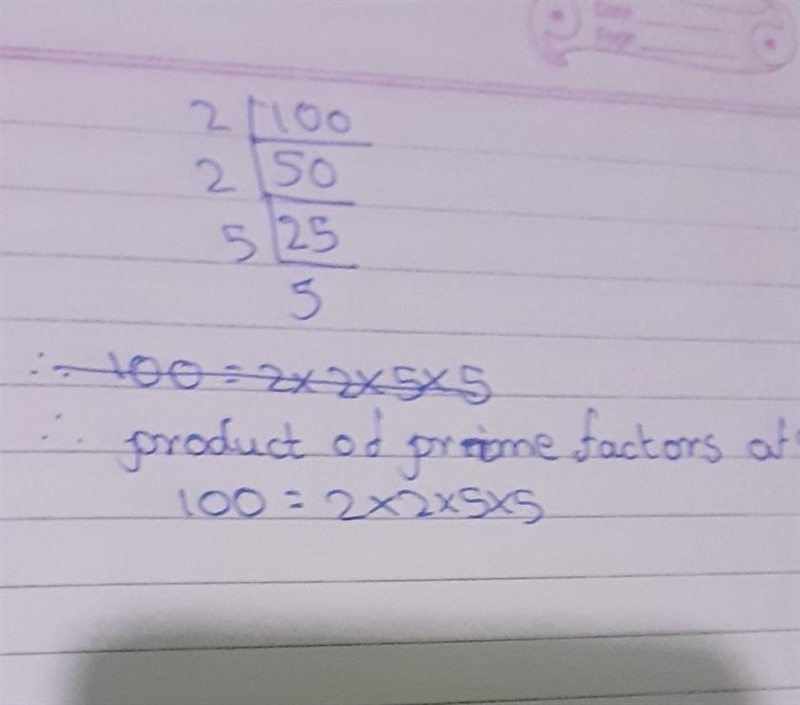 2 | 100
2 | 50
5 | 25
5
∴ 100 = 2×2×5×5
∴ product of prime factors of
100 = 2×2×5×5